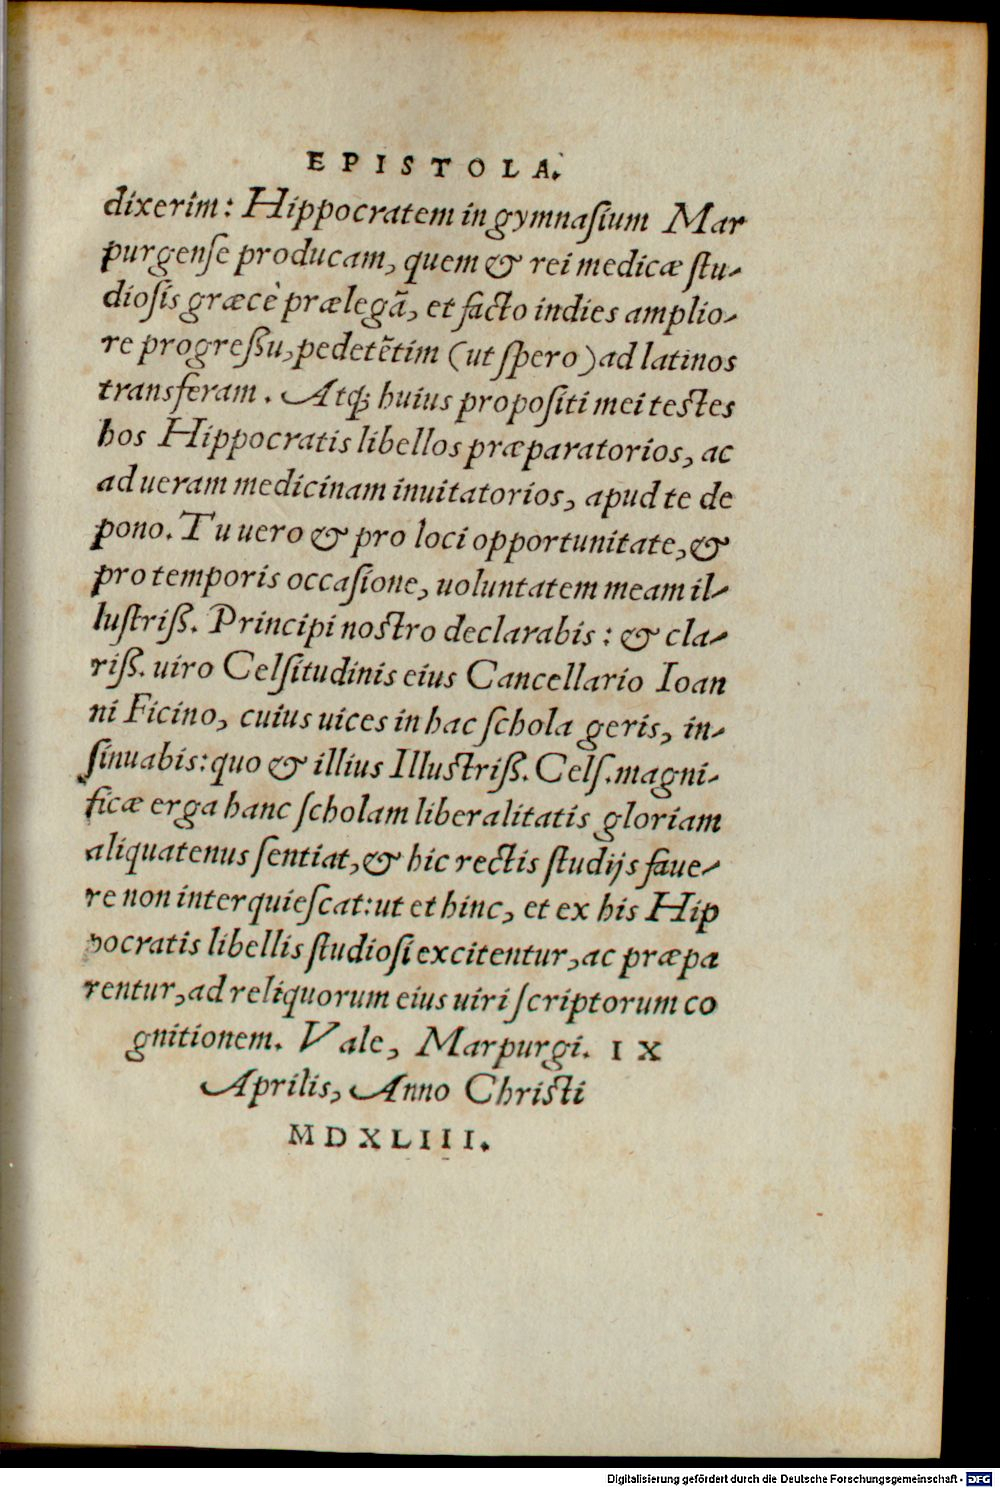 EPISTOLA.
dixerim: Hippocratem in gymnaſium Mar
purgenſe producam, quem & rei medicæ ſtu-
dioſis græcè prælegã, et facto indies amplio-
re progreßu, pedetẽtim (ut ſpero) ad latinos
transferam. Atq; huius propoſiti mei testes
hos Hippocratis libellos præparatorios, ac
ad ueram medicinam inuitatorios, apud te de
pono. Tu uero & pro loci opportunitate, &
pro temporis occaſione, uoluntatem meam il-
luſtriß. Principi nostro declarabis: & cla-
riß. uiro Celſitudinis eius Cancellario Ioan
ni Ficino, cuius uices in hac ſchola geris, in-
ſinuabis: quo & illius Illustriß. Celſ. magni-
ficæ erga hanc ſcholam liberalitatis gloriam
aliquatenus ſentiat, & hic rectis ſtudijs faue-
re non interquieſcat: ut et hinc, et ex his Hip
pocratis libellis ſtudioſi excitentur, ac præpa
rentur, ad reliquorum eius uiri ſcriptorum co
gnitionem. Vale, Marpurgi. IX
Aprilis, Anno Christi
MDXLIII.
Digitalisierung gefördert durch die Deutsche Forschungsgemeinschaft - DFG